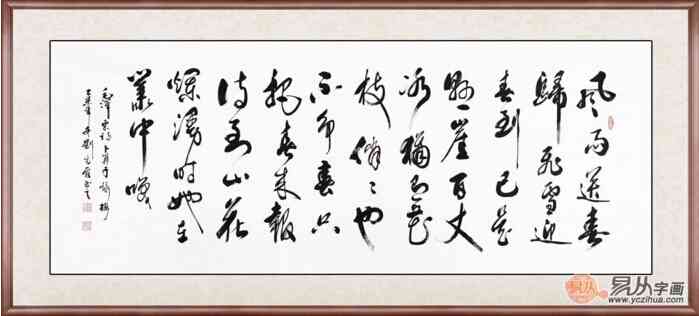 風雨送春
歸飛雪迎
春到已是
懸崖百丈
冰猶有花
枝俏々也
不争春只
把春来報
待到山花
爛漫時她在
叢中咲
毛澤東詞卜算子詠梅
乙未年 劉 書
易从字画
www.yczihua.com